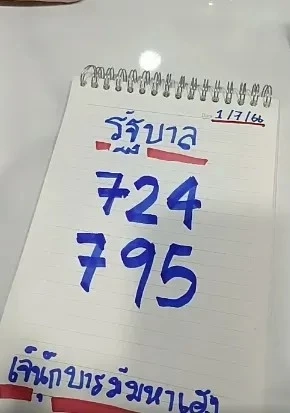 1/7/66
รัฐบาล
724
795
เจ๊นุ๊กบารมีมหาเฮง